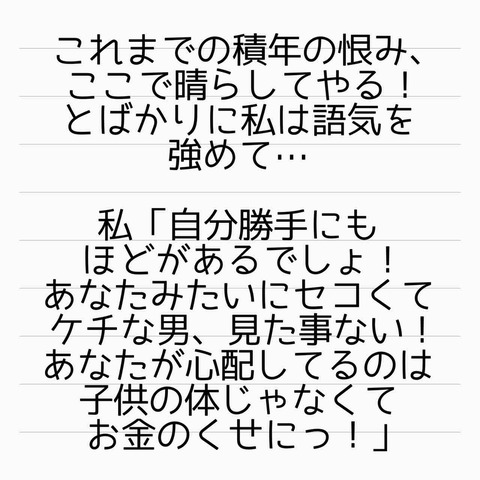 これまでの積年の恨み、
ここで晴らしてやる！
とばかりに私は語気を
強めて…
私「自分勝手にも
ほどがあるでしょ！
あなたみたいにセコくて
ケチな男、見た事ない！
あなたが心配してるのは
子供の体じゃなくて
お金のくせにっ！」